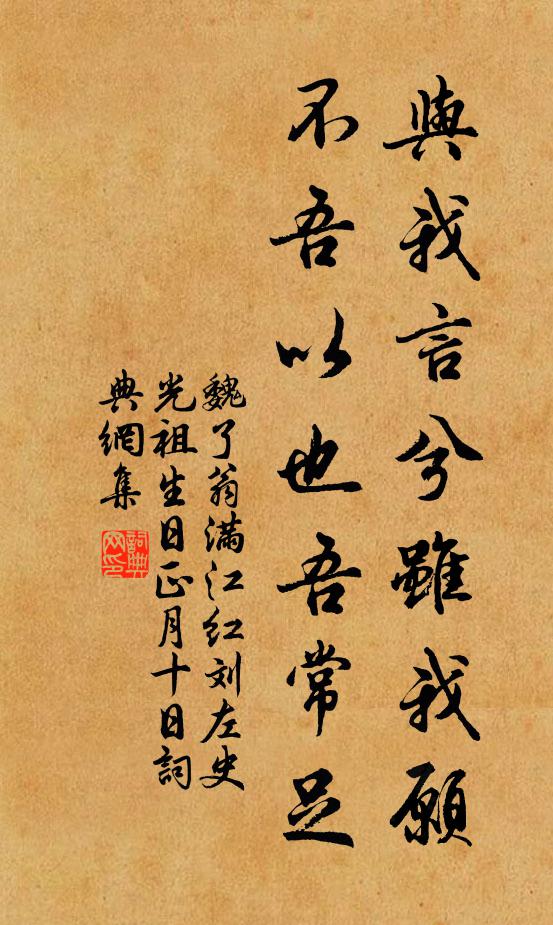 與我言兮雖我願
不吾以也吾常足
魏了翁满江红刘左史
光祖生日正月十日詞
典網集
詞典
网印